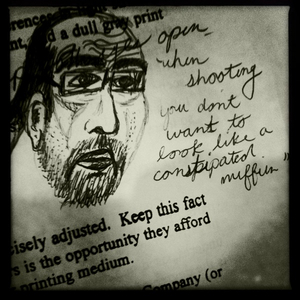 nt, and a dull gray print
open
when
shooting
you don't
want to
look like a
constipated
muffin"
isely adjusted. Keep this fact
s is the opportunity they afford
printing medium.
Company (or